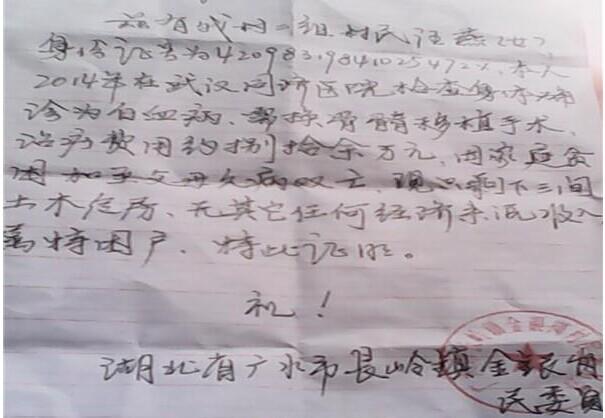 兹有我村二组村民汪燕(女)
身份证号为420983198410254724,本人
2014年在武汉同济医院检查身体
诊为白血病、需换骨髓移植手术、
治疗费用约捌拾余万元,因家庭贫
困加至父母久病双亡,现只剩下三间
土木住房、无其它任何经济来源收入
属特困户,特此证明。
礼!
湖北省广水市长岭镇金银村
民委员